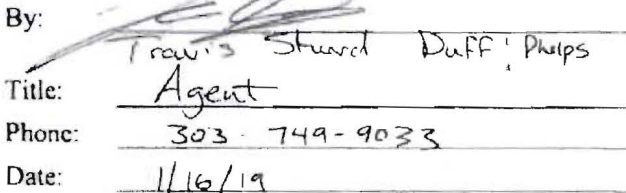 By:
Travis Stuard Duff & Phelps
Title: Agent
Phone: 303-749-9033
Date: 1/16/19